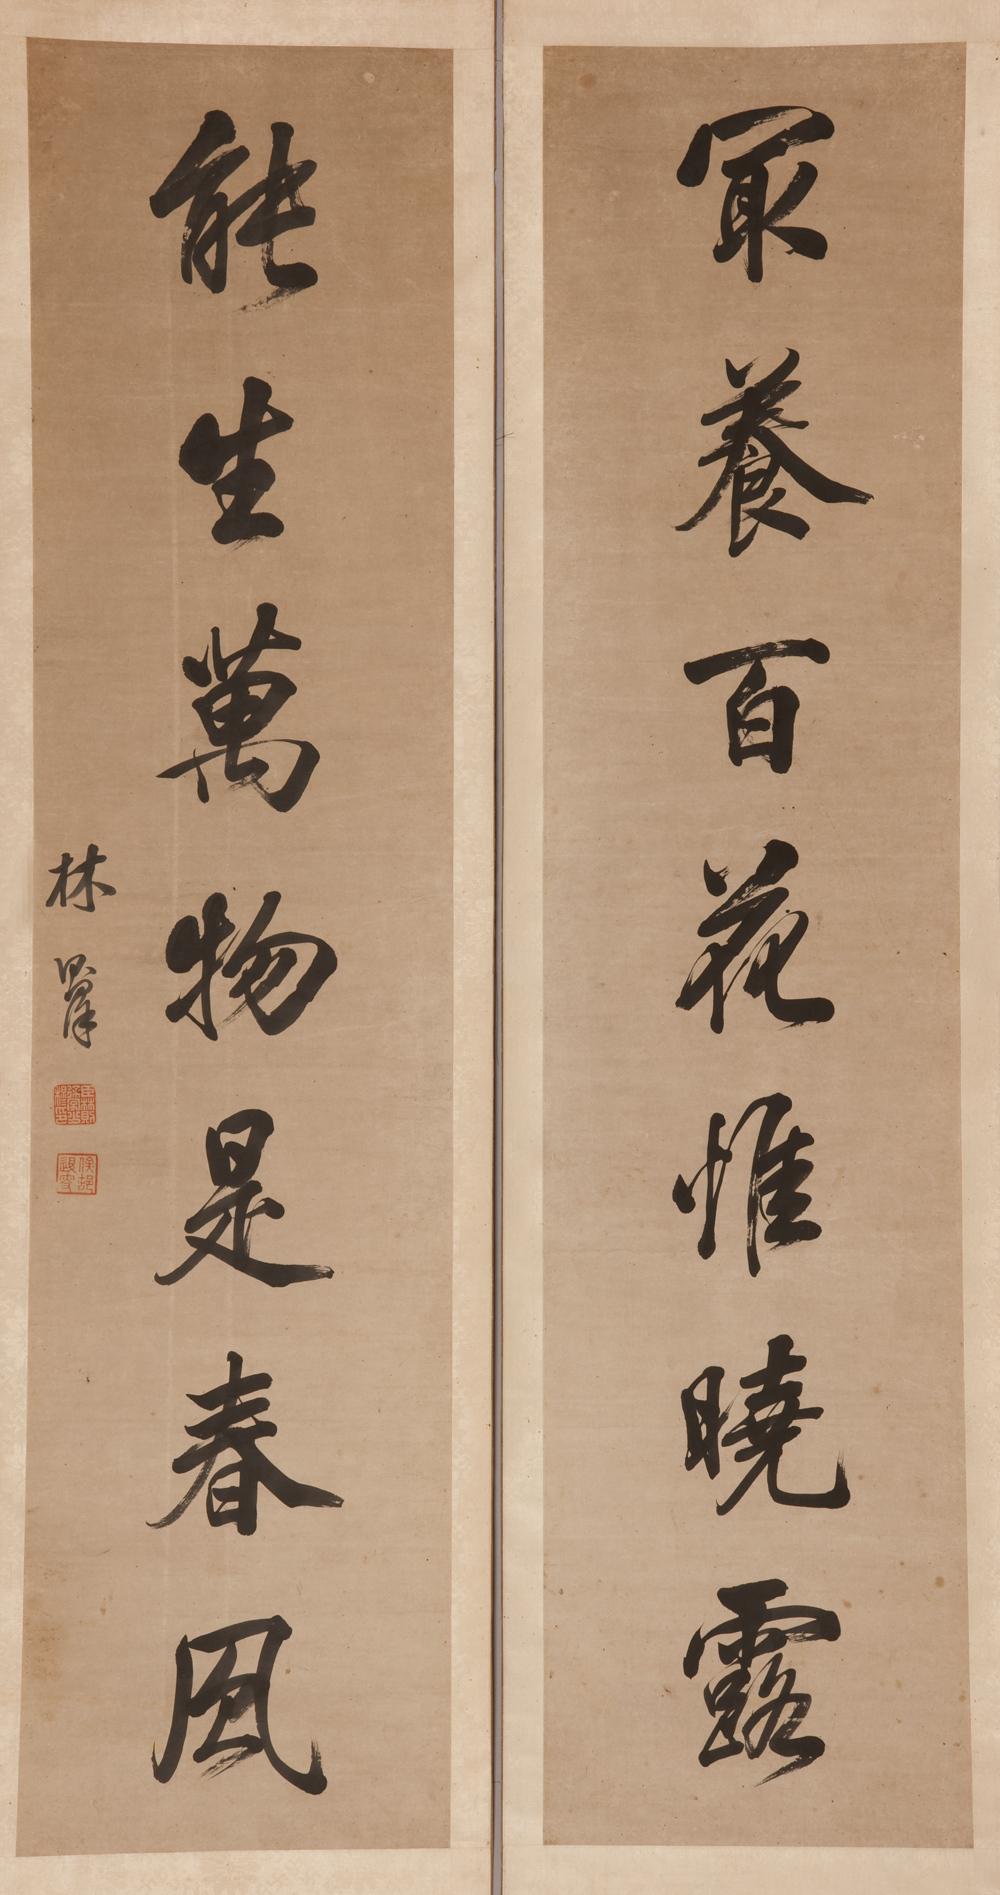 冣養百花惟曉露
能生萬物是春風
林則徐